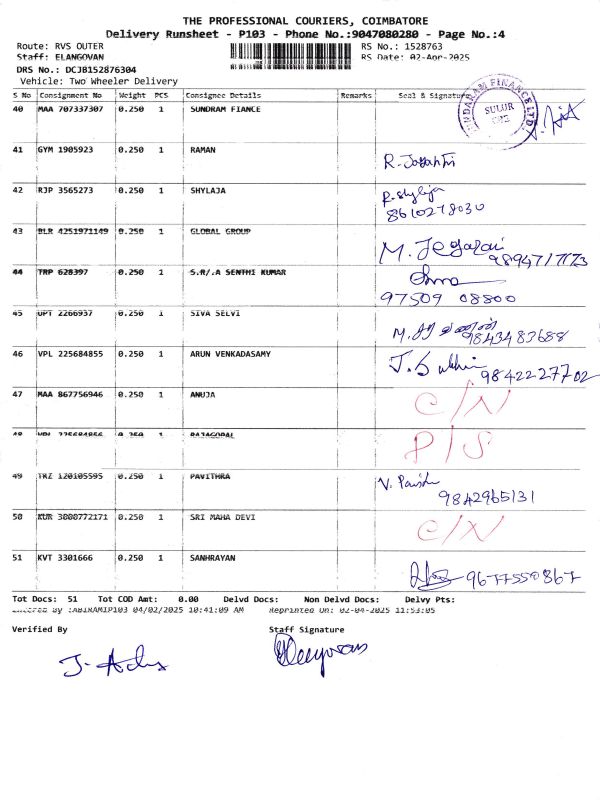 THE PROFESSIONAL COURIERS, COIMBATORE
Delivery Runsheet - P103 - Phone No.:9047080280 - Page No.:4
Route: RVS OUTER RS No.: 1528763
Staff: ELANGOVAN RS Date: 02-Apr-2025
DRS No.: DCJB152876304
Vehicle: Two Wheeler Delivery
S No Consignment No Weight PCS Consignee Details Remarks Seal & Signature
40 MAA 707337307 0.250 1 SUNDRAM FIANCE
SUNDARAM FINANCE LTD. SULUR
41 GYM 1905923 0.250 1 RAMAN
R. Jayanthi
42 RJP 3565273 0.250 1 SHYLAJA R. Shylaja
8610278030
43 BLR 4251971149 0.250 1 GLOBAL GROUP
M. Jegarai
44 TRP 628397 0.250 1 S.R/.A SENTHI KUMAR
97509 08800
45 UPT 2266937 0.250 1 SIVA SELVI
9843483688
46 VPL 225684855 0.250 1 ARUN VENKADASAMY
9842227702
47 MAA 867756946 0.250 1 ANUJA C/N
48 VPL 225684856 0.250 1 RAJAGOPAL P/S
49 TRZ 120105595 0.250 1 PAVITHRA V.
9842965131
50 KUR 3000772171 0.250 1 SRI MAHA DEVI C/N
51 KVT 3301666 0.250 1 SANHRAYAN
9677550867
Tot Docs: 51 Tot COD Amt: 0.00 Delvd Docs: Non Delvd Docs: Delvy Pts:
Entered By :ABIRAMIP103 04/02/2025 10:41:09 AM Reprinted On: 02-04-2025 11:53:05
Verified By Staff Signature